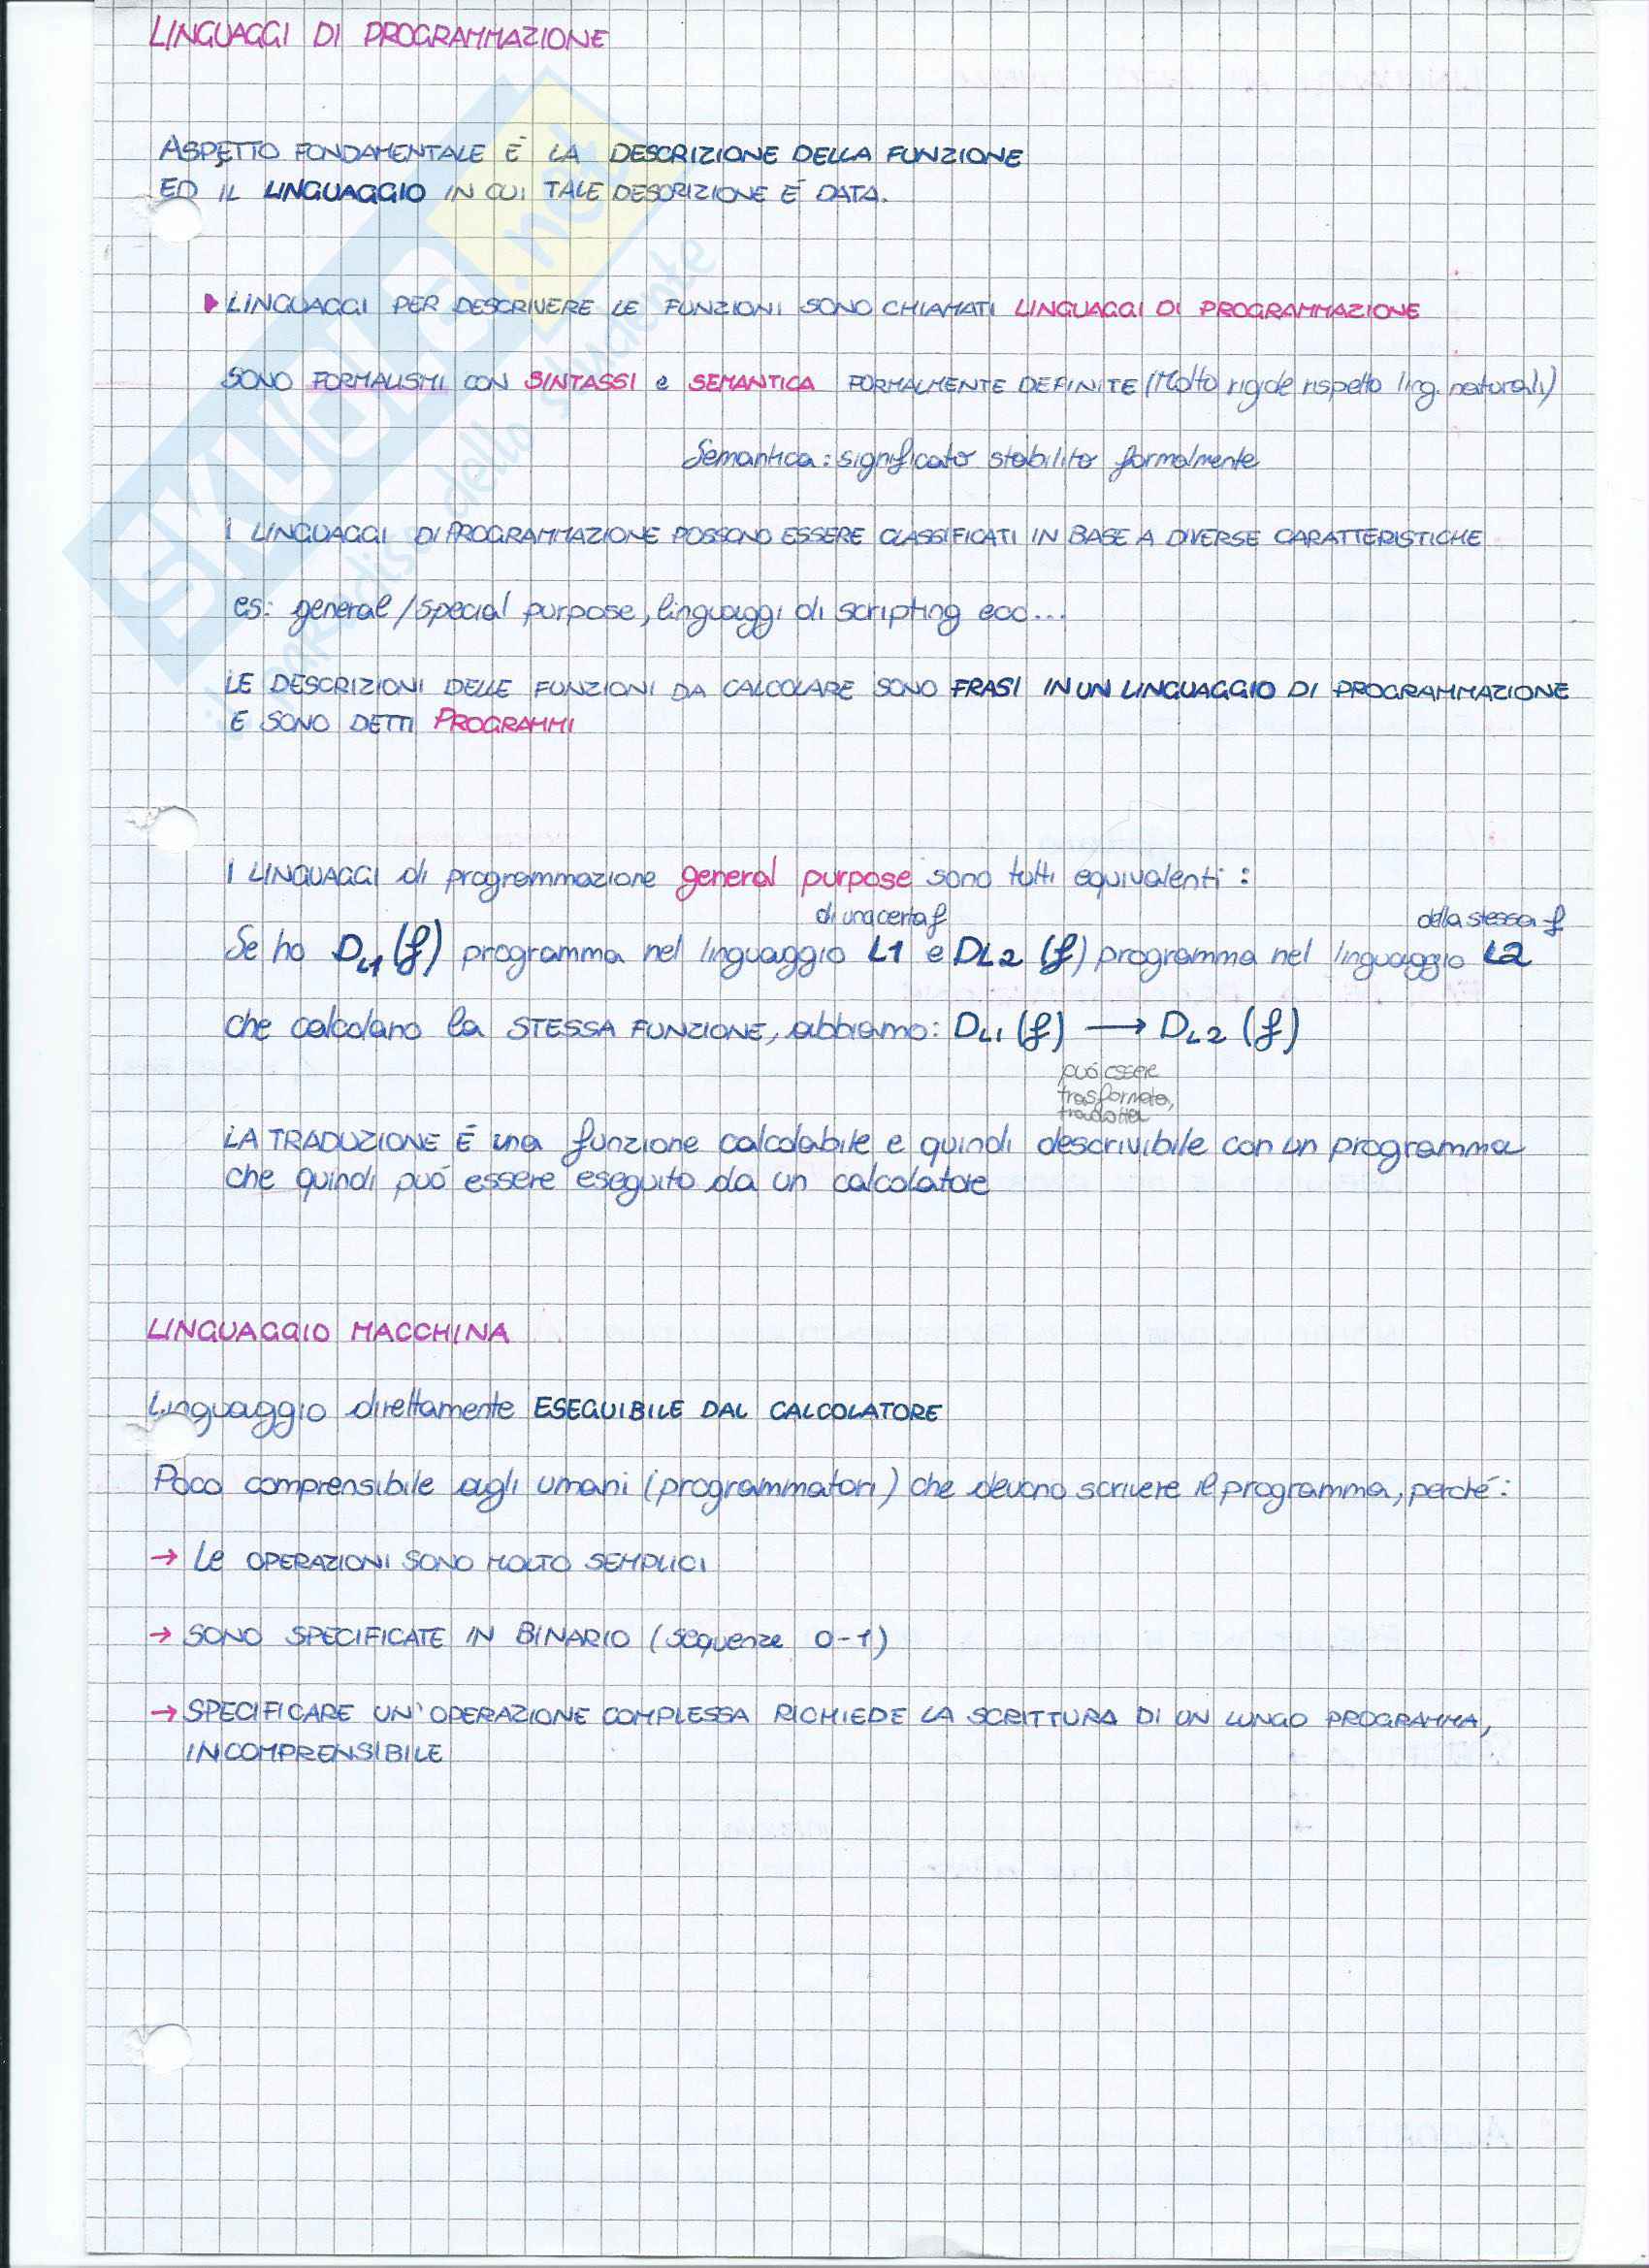 LINGUAGGI DI PROGRAMMAZIONE
ASPETTO FONDAMENTALE È LA DESCRIZIONE DELLA FUNZIONE
ED IL LINGUAGGIO IN CUI TALE DESCRIZIONE È DATA.
LINGUAGGI PER DESCRIVERE LE FUNZIONI SONO CHIAMATI LINGUAGGI DI PROGRAMMAZIONE
SONO FORMALISMI CON SINTASSI e SEMANTICA FORMALMENTE DEFINITE (Molto rigide rispetto ling. naturali)
Semantica: significato stabilito formalmente
I LINGUAGGI DI PROGRAMMAZIONE POSSONO ESSERE CLASSIFICATI IN BASE A DIVERSE CARATTERISTICHE
es: general/special purpose, linguaggi di scripting ecc...
LE DESCRIZIONI DELLE FUNZIONI DA CALCOLARE SONO FRASI IN UN LINGUAGGIO DI PROGRAMMAZIONE
E SONO DETTI PROGRAMMI
I LINGUAGGI di programmazione general purpose sono tutti equivalenti:
di una certa f della stessa f
Se ho DL1 (f) programma nel linguaggio L1 e DL2 (f) programma nel linguaggio L2
che calcolano la STESSA FUNZIONE, abbiamo: DL1 (f) → DL2 (f)
può essere
trasformato,
tradotta
LA TRADUZIONE È una funzione calcolabile e quindi descrivibile con un programma
che quindi può essere eseguito da un calcolatore
LINGUAGGIO MACCHINA
Linguaggio direttamente ESEGUIBILE DAL CALCOLATORE
Poco comprensibile agli umani (programmatori) che devono scrivere il programma, perché:
→ Le OPERAZIONI SONO MOLTO SEMPLICI
→ SONO SPECIFICATE IN BINARIO (sequenze 0-1)
→ SPECIFICARE UN'OPERAZIONE COMPLESSA RICHIEDE LA SCRITTURA DI UN LUNGO PROGRAMMA,
INCOMPRENSIBILE
SKUOLA.net
il paradiso dello studente